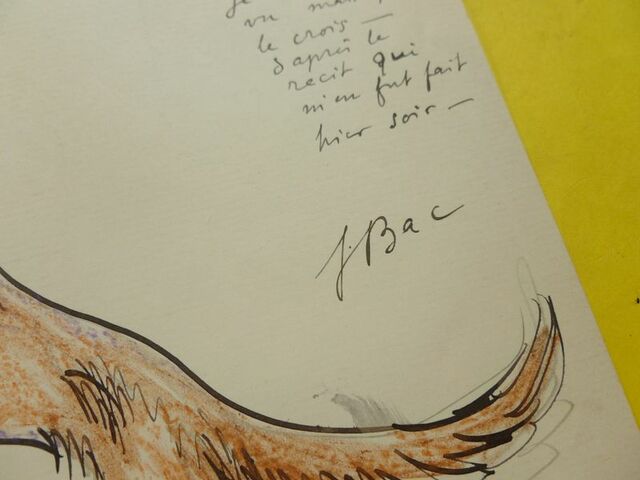 je
vu mais,
le crois —
d'après le
récit qui
m'en fut fait
hier soir —
J. Bac